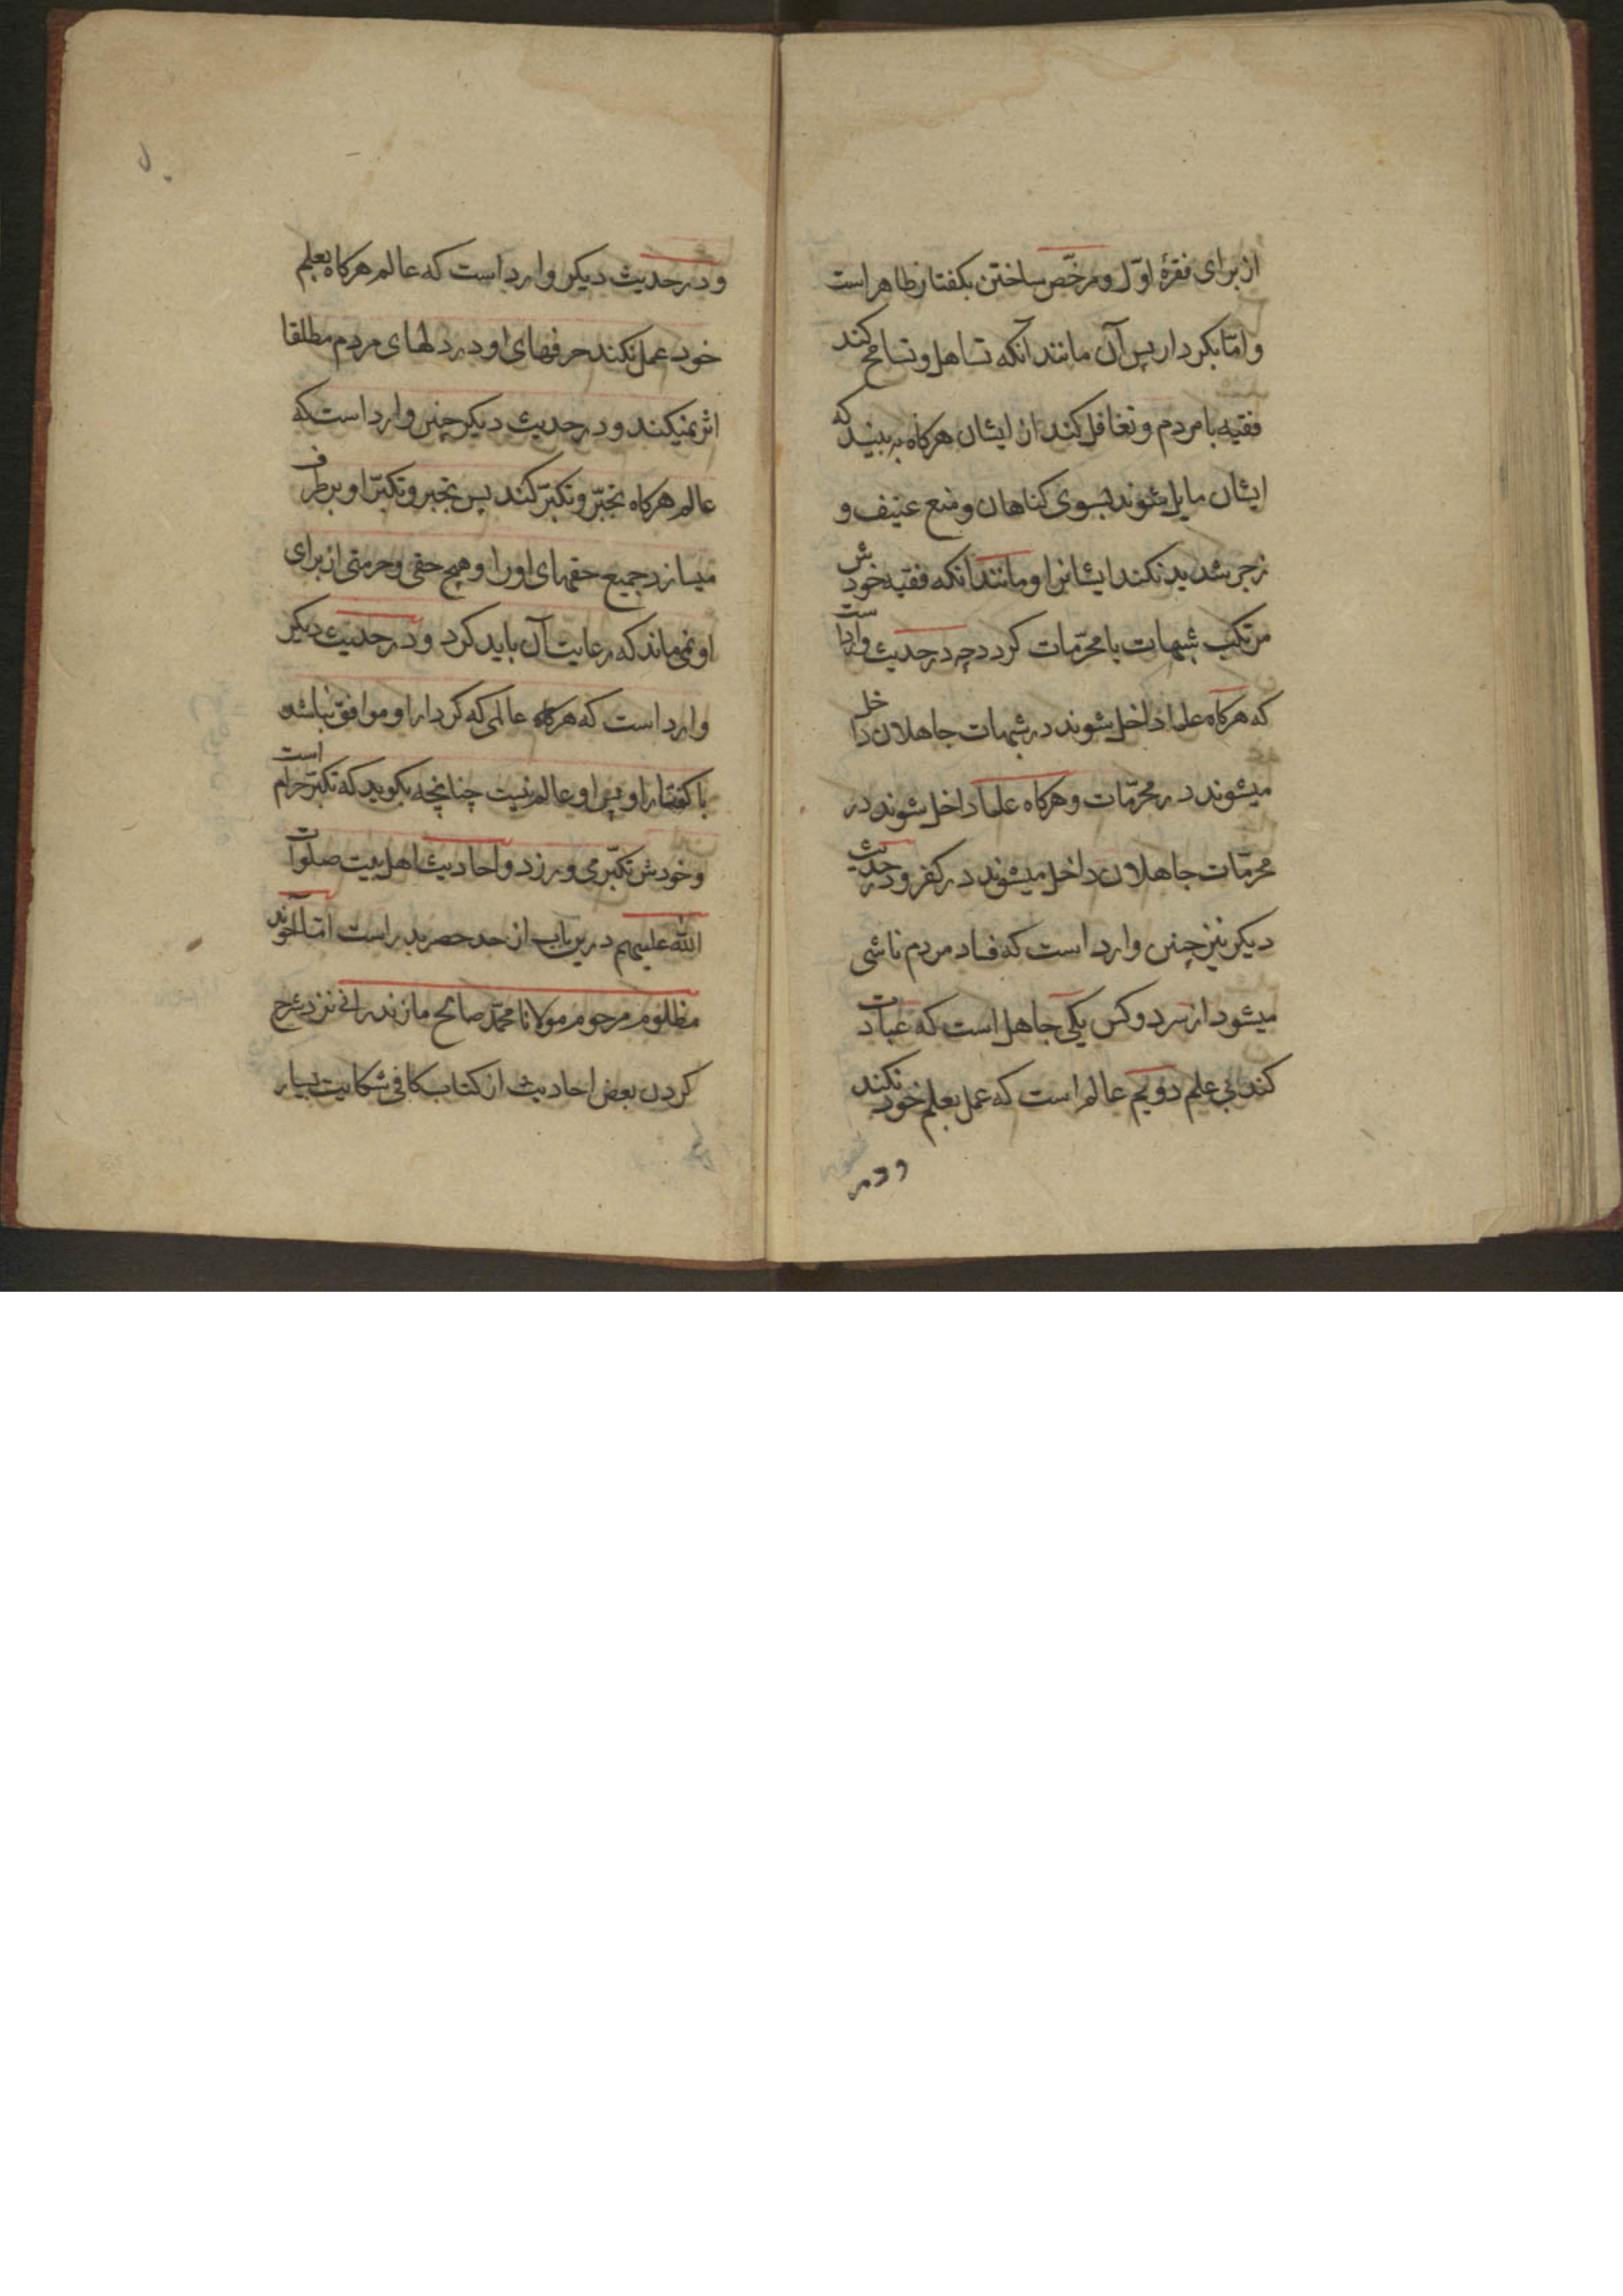 از برای فقرهٔ اوّل و مرخّص ساختن بکفتار ظاهر است
و امّا بکردار پس آن مانند آنکه تساهل و تسامح کند
فقیه با مردم و تغافل کند از ایشان هرکاه به بیند که
ایشان مایل شوند بسوی کناهان و منع عنیف و
زجر شدید نکند ایشانرا و مانند آنکه فقیه خودش
مرتکب شبهات یا محرّمات کردد چه در حدیث وارد است
که هرکاه علما داخل شوند در شبهات جاهلان داخل
میشوند در محرّمات و هرکاه علما داخل شوند در
محرّمات جاهلان داخل میشوند در کفر و در حدیث
دیکر نیز چنین وارد است که فساد مردم ناشی
میشود از سر دو کس یکی جاهل است که عبادت
کند بی علم دویم عالم است که عمل بعلم خود نکند
و در
و در حدیث دیکر وارد است که عالم هرکاه بعلم
خود عمل نکند حرفهای او در دلهای مردم مطلقا
اثر نمیکند و در حدیث دیکر چنین وارد است که
عالم هرکاه تجبّر و تکبّر کند پس تجبر و تکبّر او برطرف
میسازد جمیع حقهای او را و هیچ حقی و حرمتی از برای
او نمی ماند که رعایت آن باید کرد و در حدیث دیکر
وارد است که هرکاه عالمی که کردار او موافق نباشد
با کفتار او پس او عالم نیست چنانچه بکوید که تکبّر حرام است
و خودش تکبّر می ورزد و احادیث اهل بیت صلوات
اللّه علیهم درین باب از حد حصر بدر است امّا آخوند
مظلوم مرحوم مولانا محمّد صالح مازندرانی نزد شرح
کردن بعض احادیث از کتاب کافی شکایت بسیار